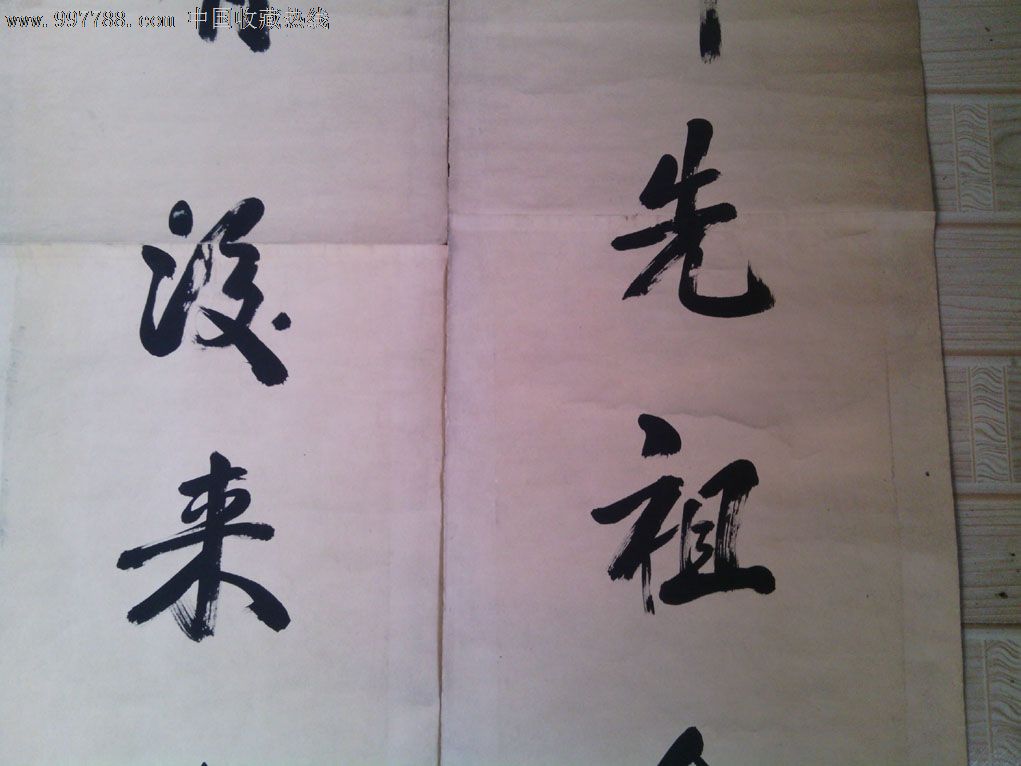 www.997788.com 中国收藏热线
先祖
後来